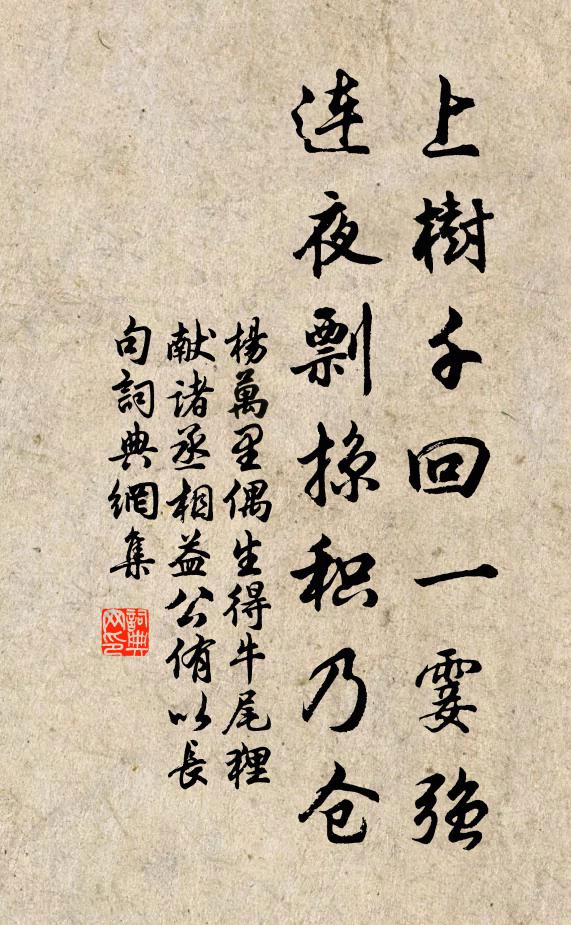 上樹千回一霎強
連夜剽掠积乃仓
楊萬里偶生得牛尾貍
献诸丞相益公侑以長
句詞典網集
詞典
网印